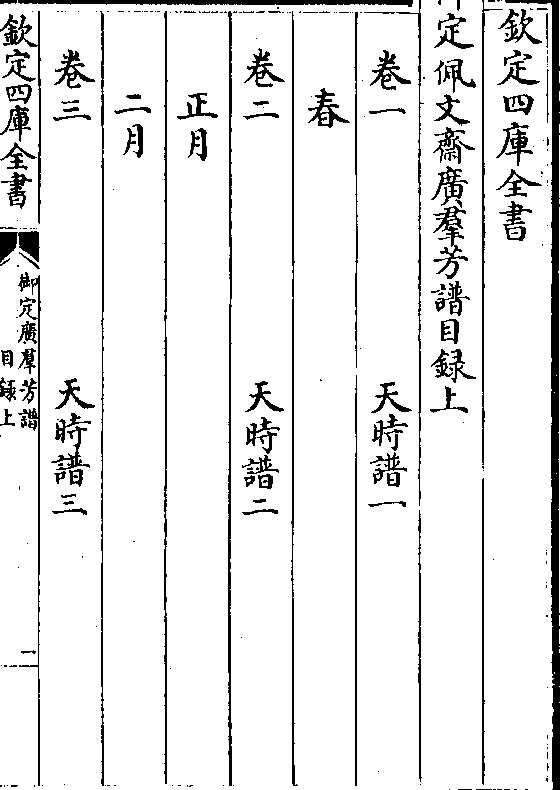 欽定四庫全書
定佩文齋廣羣芳譜目録上
卷一 天時譜一
春
卷二 天時譜二
正月
二月
卷三 天時譜三
欽定四庫全書
御定廣羣芳譜
目録上
一